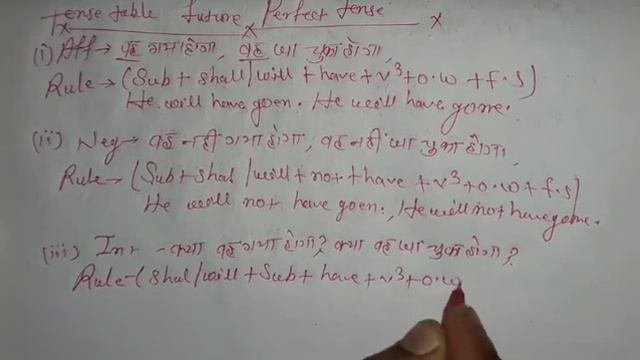 Tense table Future Perfect tense
(i) Aff → वह गया होगा, वह जा चुका होगा,
Rule → (Sub + shall/will + have + v³ + o.w + f.s)
He will have goen. He will have gone.
(ii) Neg → वह नहीं गया होगा, वह नहीं जा चुका होगा,
Rule → (Sub + shal/will + not + have + v³ + o.w + f.s)
He will not have goen., He will not have gone.
(iii) Int - क्या वह गया होगा? क्या वह जा चुका होगा?
Rule - (Shal/will + Sub + have + v³ + o.w